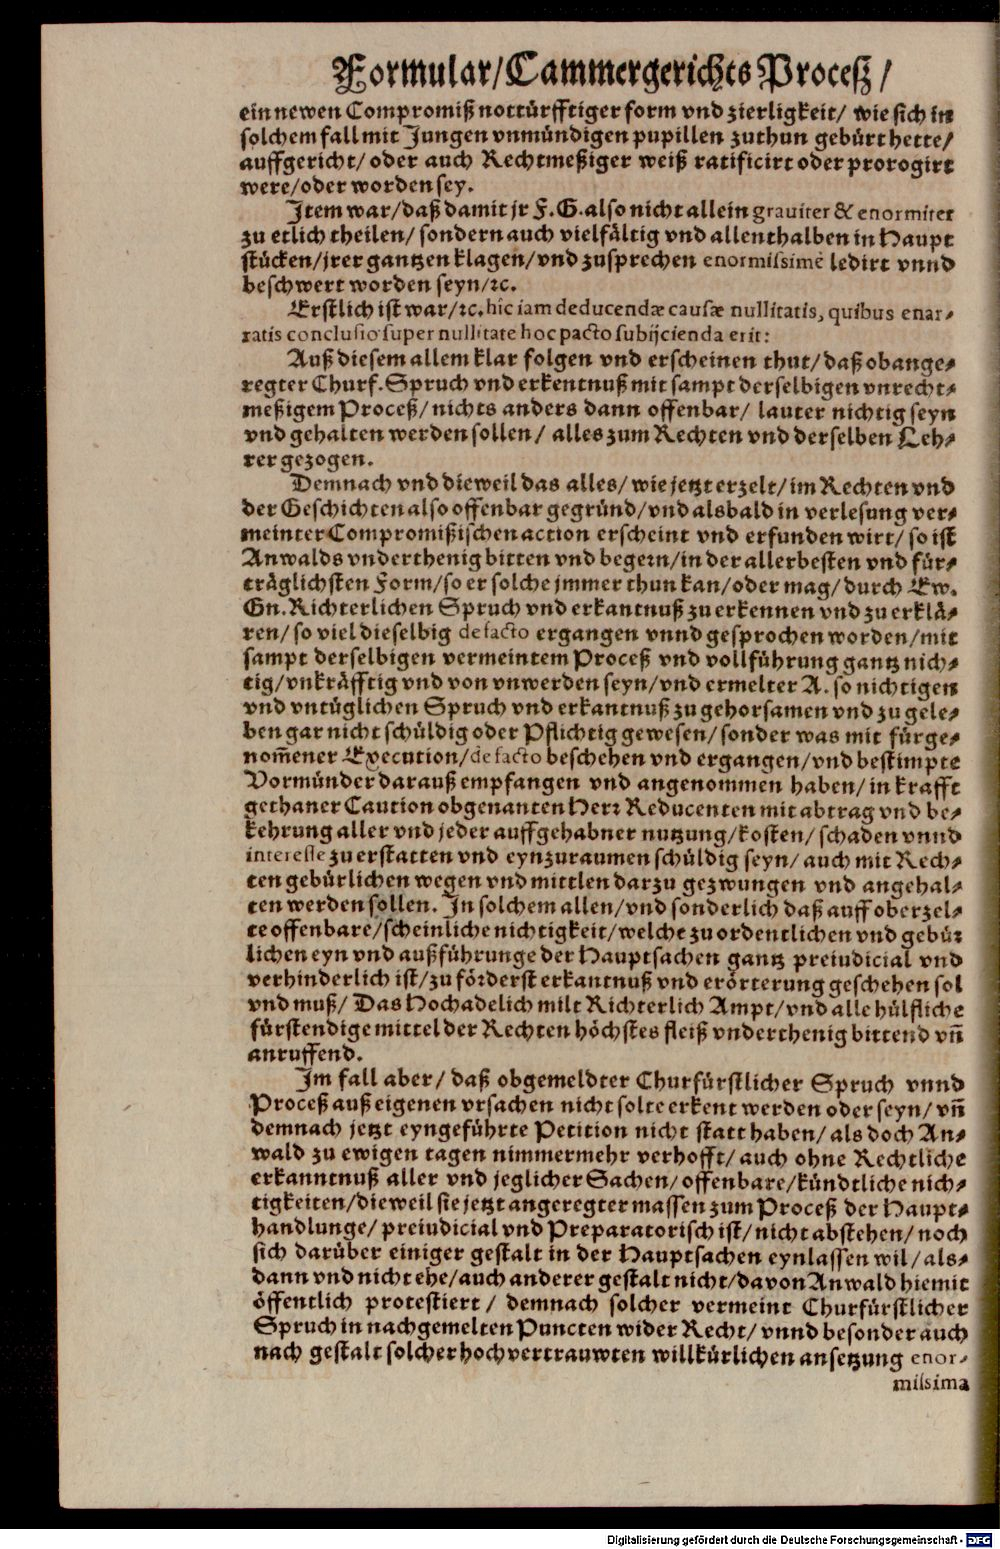 Formular/Cammergerichts Proceſz/
ein newen Compromiß nottürfftiger form vnd zierligkeit/ wie ſich in
ſolchem fall mit Jungen vnmündigen pupillen zuthun gebürt hette/
auffgericht/ oder auch Rechtmeßiger weiß ratificirt oder prorogirt
were/oder worden ſey.
Jtem war/daß damit jr F.G. alſo nicht allein grauiter & enormiter
zu etlich theilen/ ſondern auch vielfältig vnd allenthalben in Haupt
ſtücken/jrer gantzen klagen/vnd zuſprechen enormiſsimè ledirt vnnd
beſchwert worden ſeyn/ꝛc.
Erſtlich iſt war/ꝛc. hîc iam deducendæ cauſæ nullitatis, quibus enar-
ratis concluſio ſuper nullitate hoc pacto ſubijcienda erit:
Auß dieſem allem klar folgen vnd erſcheinen thut/ daß obange-
regter Churf. Spruch vnd erkentnuß mit ſampt derſelbigen vnrecht-
meßigem Proceß/ nichts anders dann offenbar/ lauter nichtig ſeyn
vnd gehalten werden ſollen/ alles zum Rechten vnd derſelben Leh-
rer gezogen.
Demnach vnd dieweil das alles/ wie jetzt erzelt/ im Rechten vnd
der Geſchichten alſo offenbar gegründ/ vnd alsbald in verleſung ver-
meinter Compromißiſchen action erſcheint vnd erfunden wirt/ ſo iſt
Anwalds vnderthenig bitten vnd begern/ in der allerbeſten vnd für-
träglichſten Form/ ſo er ſolche jmmer thun kan/ oder mag/ durch Ew.
Gn. Richterlichen Spruch vnd erkantnuß zu erkennen vnd zu erklä-
ren/ ſo viel dieſelbig de facto ergangen vnnd geſprochen worden/ mit
ſampt derſelbigen vermeintem Proceß vnd vollführung gantz nich-
tig/ vnkräfftig vnd von vnwerden ſeyn/ vnd ermelter A. ſo nichtigen
vnd vntüglichen Spruch vnd erkantnuß zu gehorſamen vnd zu gele-
ben gar nicht ſchüldig oder Pflichtig geweſen/ ſonder was mit fürge-
nom̃ener Execution/ de facto beſchehen vnd ergangen/ vnd beſtimpte
Vormünder darauß empfangen vnd angenommen haben/ in krafft
gethaner Caution obgenanten Herꝛ Reducenten mit abtrag vnd be-
kehrung aller vnd jeder auffgehabner nutzung/ koſten/ ſchaden vnnd
intereſſe zu erſtatten vnd eynzuraumen ſchüldig ſeyn/ auch mit Rech-
ten gebürlichen wegen vnd mittlen darzu gezwungen vnd angehal-
ten werden ſollen. Jn ſolchem allen/ vnd ſonderlich daß auff oberzel-
te offenbare/ ſcheinliche nichtigkeit/ welche zu ordentlichen vnd gebüꝛ
lichen eyn vnd außführunge der Hauptſachen gantz preiudicial vnd
verhinderlich iſt/ zu förderſt erkantnuß vnd erörterung geſchehen ſol
vnd muß/ Das Hochadelich milt Richterlich Ampt/ vnd alle hülfliche
fürſtendige mittel der Rechten höchſtes fleiß vnderthenig bittend vñ
anruffend.
Jm fall aber/ daß obgemeldter Churfürſtlicher Spruch vnnd
Proceß auß eigenen vrſachen nicht ſolte erkent werden oder ſeyn/ vñ
demnach jetzt eyngeführte Petition nicht ſtatt haben/ als doch An-
wald zu ewigen tagen nimmermehr verhofft/ auch ohne Rechtliche
erkanntnuß aller vnd jeglicher Sachen/ offenbare/ kündtliche nich-
tigkeiten/ dieweil ſie jetzt angeregter maſſen zum Proceß der Haupt-
handlunge/ preiudicial vnd Preparatoriſch iſt/ nicht abſtehen/ noch
ſich darüber einiger geſtalt in der Hauptſachen eynlaſſen wil/ als-
dann vnd nicht ehe/ auch anderer geſtalt nicht/ davon Anwald hiemit
öffentlich proteſtiert/ demnach ſolcher vermeint Churfürſtlicher
Spruch in nachgemelten Puncten wider Recht/ vnnd beſonder auch
nach geſtalt ſolcher hochvertrauwten willkürlichen anſetzung enor-
miſsima
Digitalisierung gefördert durch die Deutsche Forschungsgemeinschaft - DFG